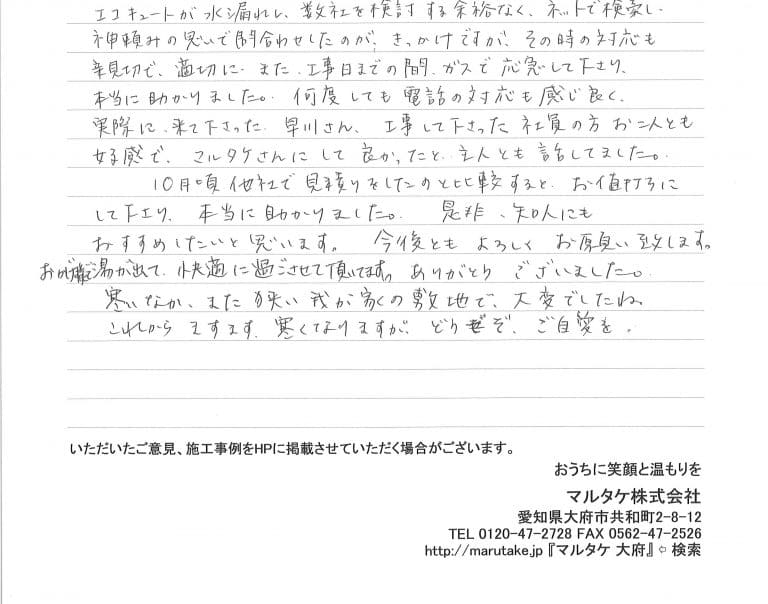 エコキュートが水漏れし、数社を検討する余裕なく、ネットで検索し、
神頼みの思いで問合わせしたのが、きっかけですが、その時の対応も
親切で、適切に、また、工事日までの間、ガスで応急して下さり、
本当に助かりました。何度しても電話の対応も感じ良く、
実際に、来て下さった、早川さん、工事して下さった社員の方お二人とも
好感で、マルタケさんにして良かったと、主人とも話してました。
10月頃他社で見積りをしたのと比較すると、お値打ちに
して下さり、本当に助かりました。是非、知人にも
おすすめしたいと思います。今後ともよろしくお願い致します。
おかげ様で湯が出て、快適に過ごさせて頂いてます。ありがとうございました。
寒いなか、また狭い我が家の敷地で、大変でしたね。
これから ますます、寒くなりますが、どうぞ、ご自愛を。
いただいたご意見、施工事例をHPに掲載させていただく場合がございます。
おうちに笑顔と温もりを
マルタケ株式会社
愛知県大府市共和町2-8-12
TEL 0120-47-2728 FAX 0562-47-2526
http://marutake.jp『マルタケ 大府』⇦ 検索